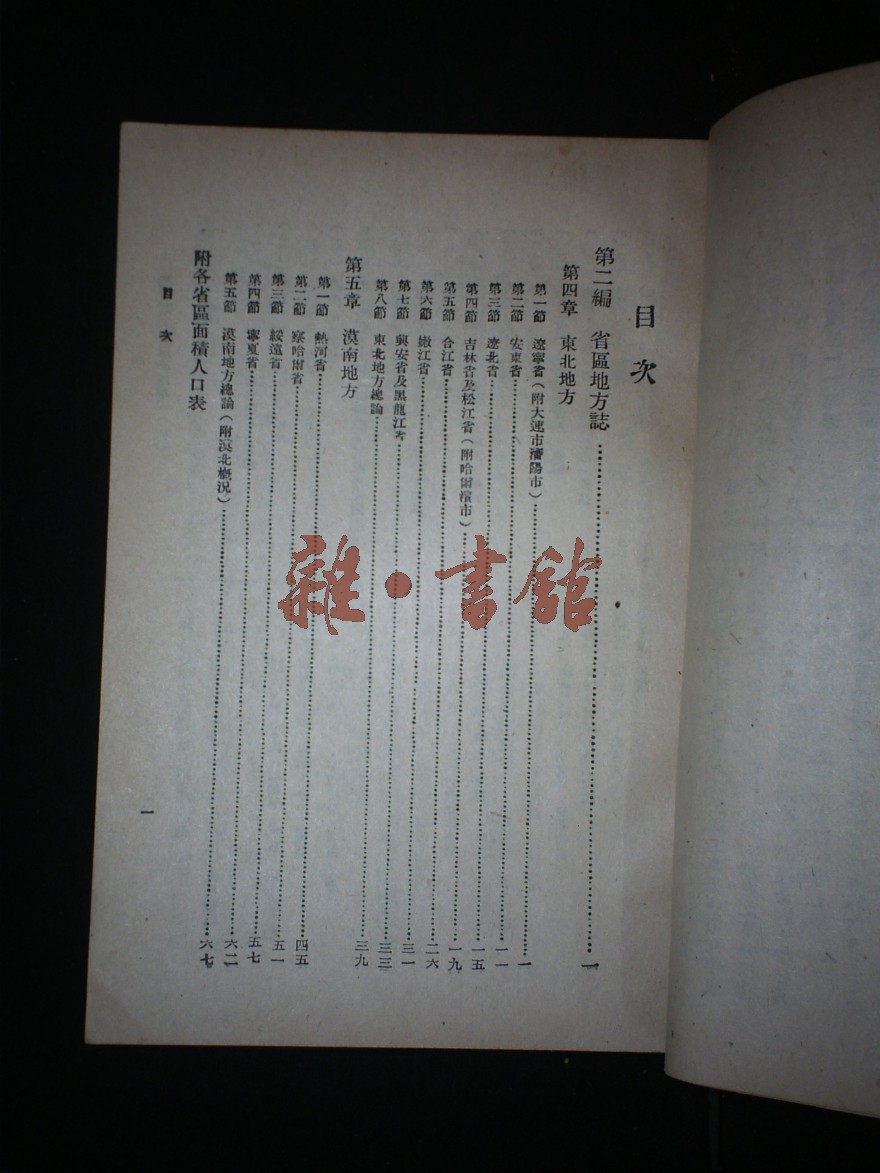 目次
第二編 省區地方誌……一
第四章 東北地方
第一節 遼寧省(附大連市瀋陽市)……一
第二節 安東省……一一
第三節 遼北省……一五
第四節 吉林省及松江省(附哈爾濱市)……一九
第五節 合江省……二六
第六節 嫩江省……三一
第七節 興安省及黑龍江省……三三
第八節 東北地方總論……三九
第五章 漠南地方
第一節 熱河省……四五
第二節 察哈爾省……五一
第三節 綏遠省……五七
第四節 寧夏省……六二
第五節 漠南地方總論(附漠北概況)……六七
附各省區面積人口表
目次
一
雜・書館